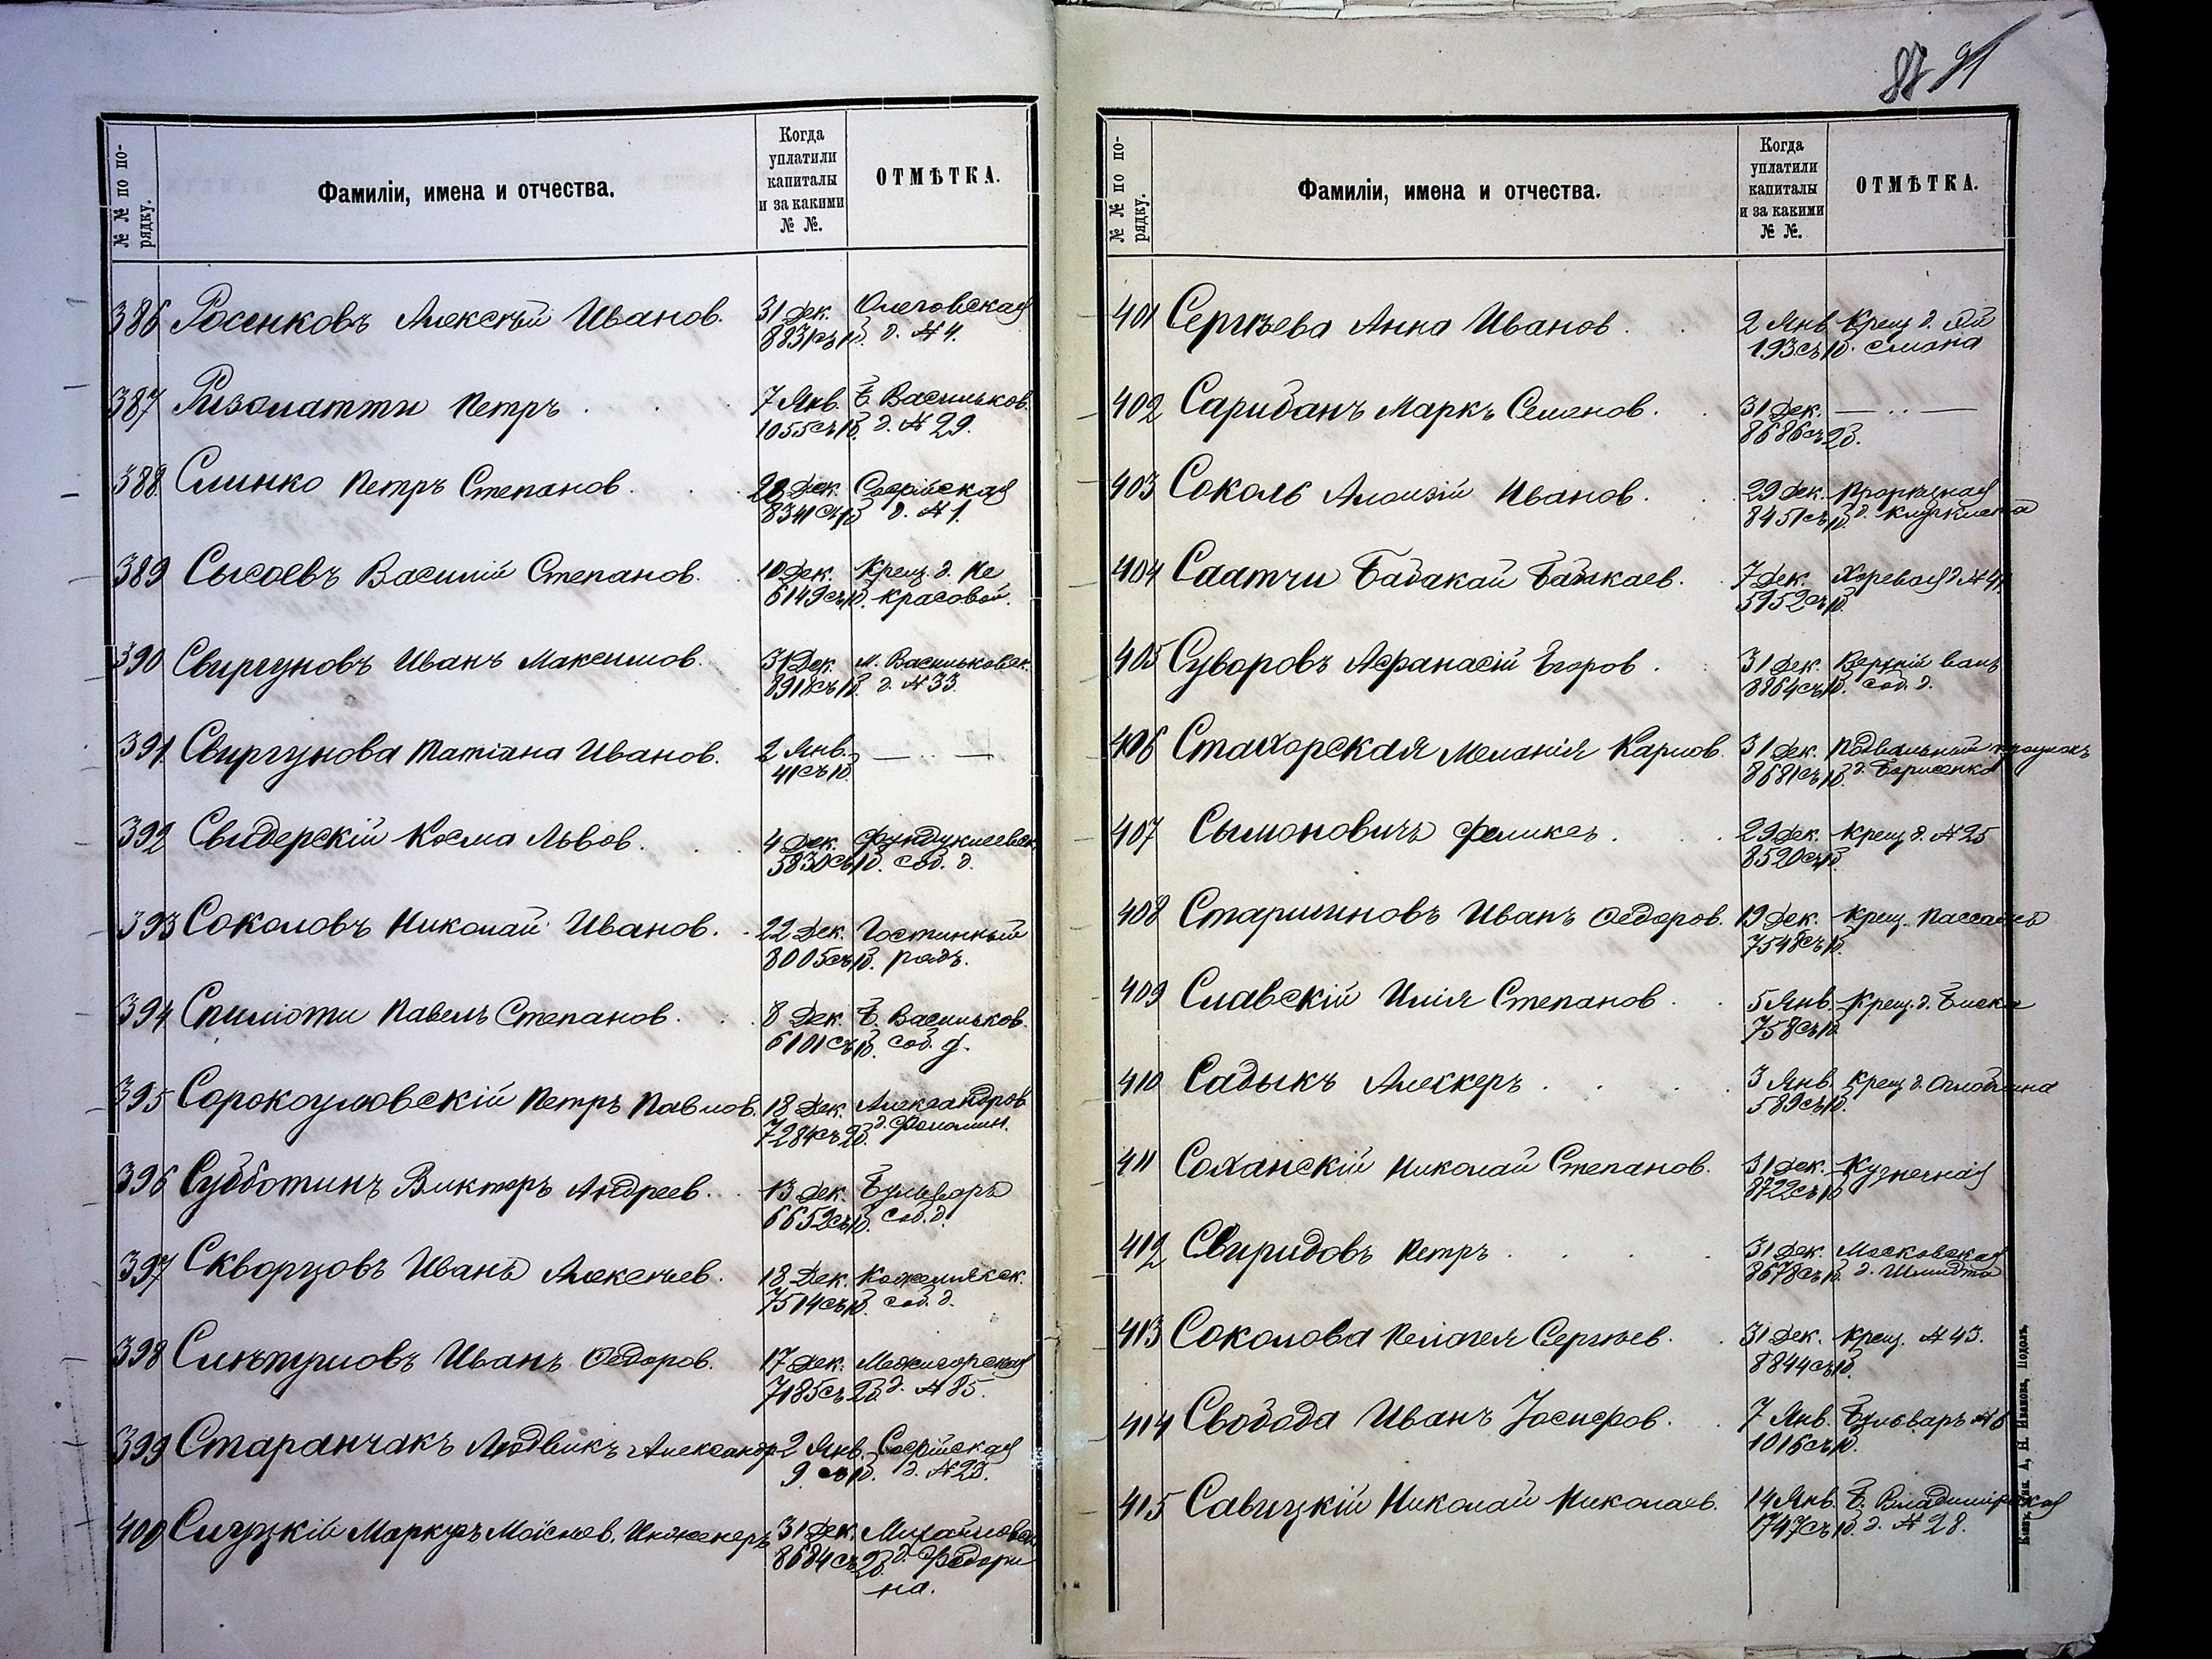 № № по по-
рядку.
Фамиліи, имена и отчества.
Когда
уплатили
капиталы
и за какими
№ №.
ОТМѢТКА.
386 Росенковъ Алексѣй Иванов. 31 Дек. Олеговская
8831 съ 1 д. № 4.
387 Ризолатти Петръ 7 Янв. Б. Васильков.
1055 съ 1 д. № 29.
388 Слинко Петръ Степанов. 28 Дек. Софійская
8341 съ 1 д. № 1.
389 Сысоевъ Василій Степанов. 10 Дек. Крещ. д. Не
6149 съ 1 красовой.
390 Свиргуновъ Иванъ Максимов. 31 Дек. М. Васильковск.
8918 съ 1 д. № 33.
391 Свиргунова Татіана Иванов. 2 Янв. — .. —
41 съ 1
392 Свидерскій Косма Львов. 4 Дек. Фундуклеевск.
5830 съ 1 соб. д.
393 Соколовъ Николай Иванов. 22 Дек. Гостинный
8005 съ 1 рядъ.
394 Спиліоти Павелъ Степанов. 8 Дек. Б. Васильков.
6101 съ 1 соб. д.
395 Сорокоумовскій Петръ Павлов. 18 Дек. Александров
7284 съ 2 д.
396 Субботинъ Викторъ Андреев. 13 Дек. Бульваръ
6652 съ 1 соб. д.
397 Скворцовъ Иванъ Алексѣев. 18 Дек. Кожемякск.
7514 съ 1 соб. д.
398 Слѣтумовъ Иванъ Ѳедоров. 17 Дек. Межигорская
7185 съ 2 д. № 85.
399 Старанчакъ Людвикъ Александр. 2 Янв. Софійская
9 съ 1 д. № 23.
400 Слуцкій Маркусъ Моѵсеев. Инженеръ 31 Дек. Михайловск.
8684 съ 2 д. Фёдори
на.
91
№ № по по-
рядку.
Фамиліи, имена и отчества.
Когда
уплатили
капиталы
и за какими
№ №.
ОТМѢТКА.
401 Сергѣева Анна Иванов. 2 Янв. Крещ. д. Эй
193 съ 1 смана
402 Сарибанъ Маркъ Семенов. 31 Дек. — .. —
8686 съ 2
403 Соколъ Алоизій Иванов. 29 Дек. Прорѣзная
8451 съ 1 д.
404 Саатчи Бабакай Бабакаев. 7 Дек. Хоревая д. № 41
5952 съ 1
405 Суворовъ Афанасій Егоров. 31 Дек. Верхній валъ
8864 съ 1 соб. д.
406 Стахорская Меланія Карпов. 31 Дек. Подвальный проулокъ
8681 съ 1 д. Борисенко
407 Сымоновичъ Феликсъ. 29 Дек. Крещ. д. № 25
8520 съ 1
408 Старшиновъ Иванъ Ѳедоров. 19 Дек. Крещ. Пассажъ
7548 съ 1
409 Славскій Илія Степанов. 5 Янв. Крещ. д. Биска
758 съ 1
410 Садыкъ Алескеръ 3 Янв. Крещ. д. Оглоблина
589 съ 1
411 Соханскій Николай Степанов. 31 Дек. Кузнечная
8722 съ 1
412 Свиридовъ Петръ 31 Дек. Московская
8678 съ 1 д. Шмидта
413 Соколова Пелагея Сергѣев. 31 Дек. Крещ. № 43.
8844 съ 1
414 Свобода Иванъ Іосифов. 7 Янв. Бульваръ № 6
1016 съ 1
415 Савицкій Николай Николаев. 14 Янв. Б. Владимірская
1747 съ 1 д. № 28.
А. Н. Иванова, Подолъ.